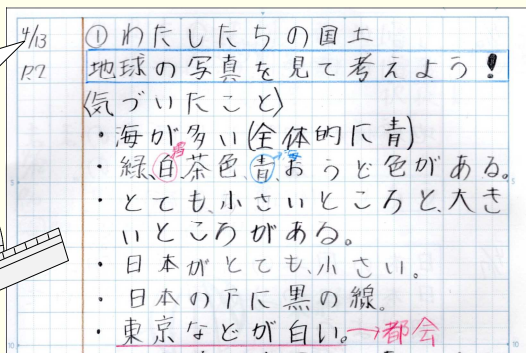 4/13 ①わたしたちの国土
P.7 地球の写真を見て考えよう！
〈気づいたこと〉
・海が多い(全体的に青)
・緑、白、茶色、青、おうど色がある。
雲 →海
・とても、小さいところと、大き
いところがある。
・日本がとても、小さい。
・日本の下に黒の線。
・東京などが白い。→都会